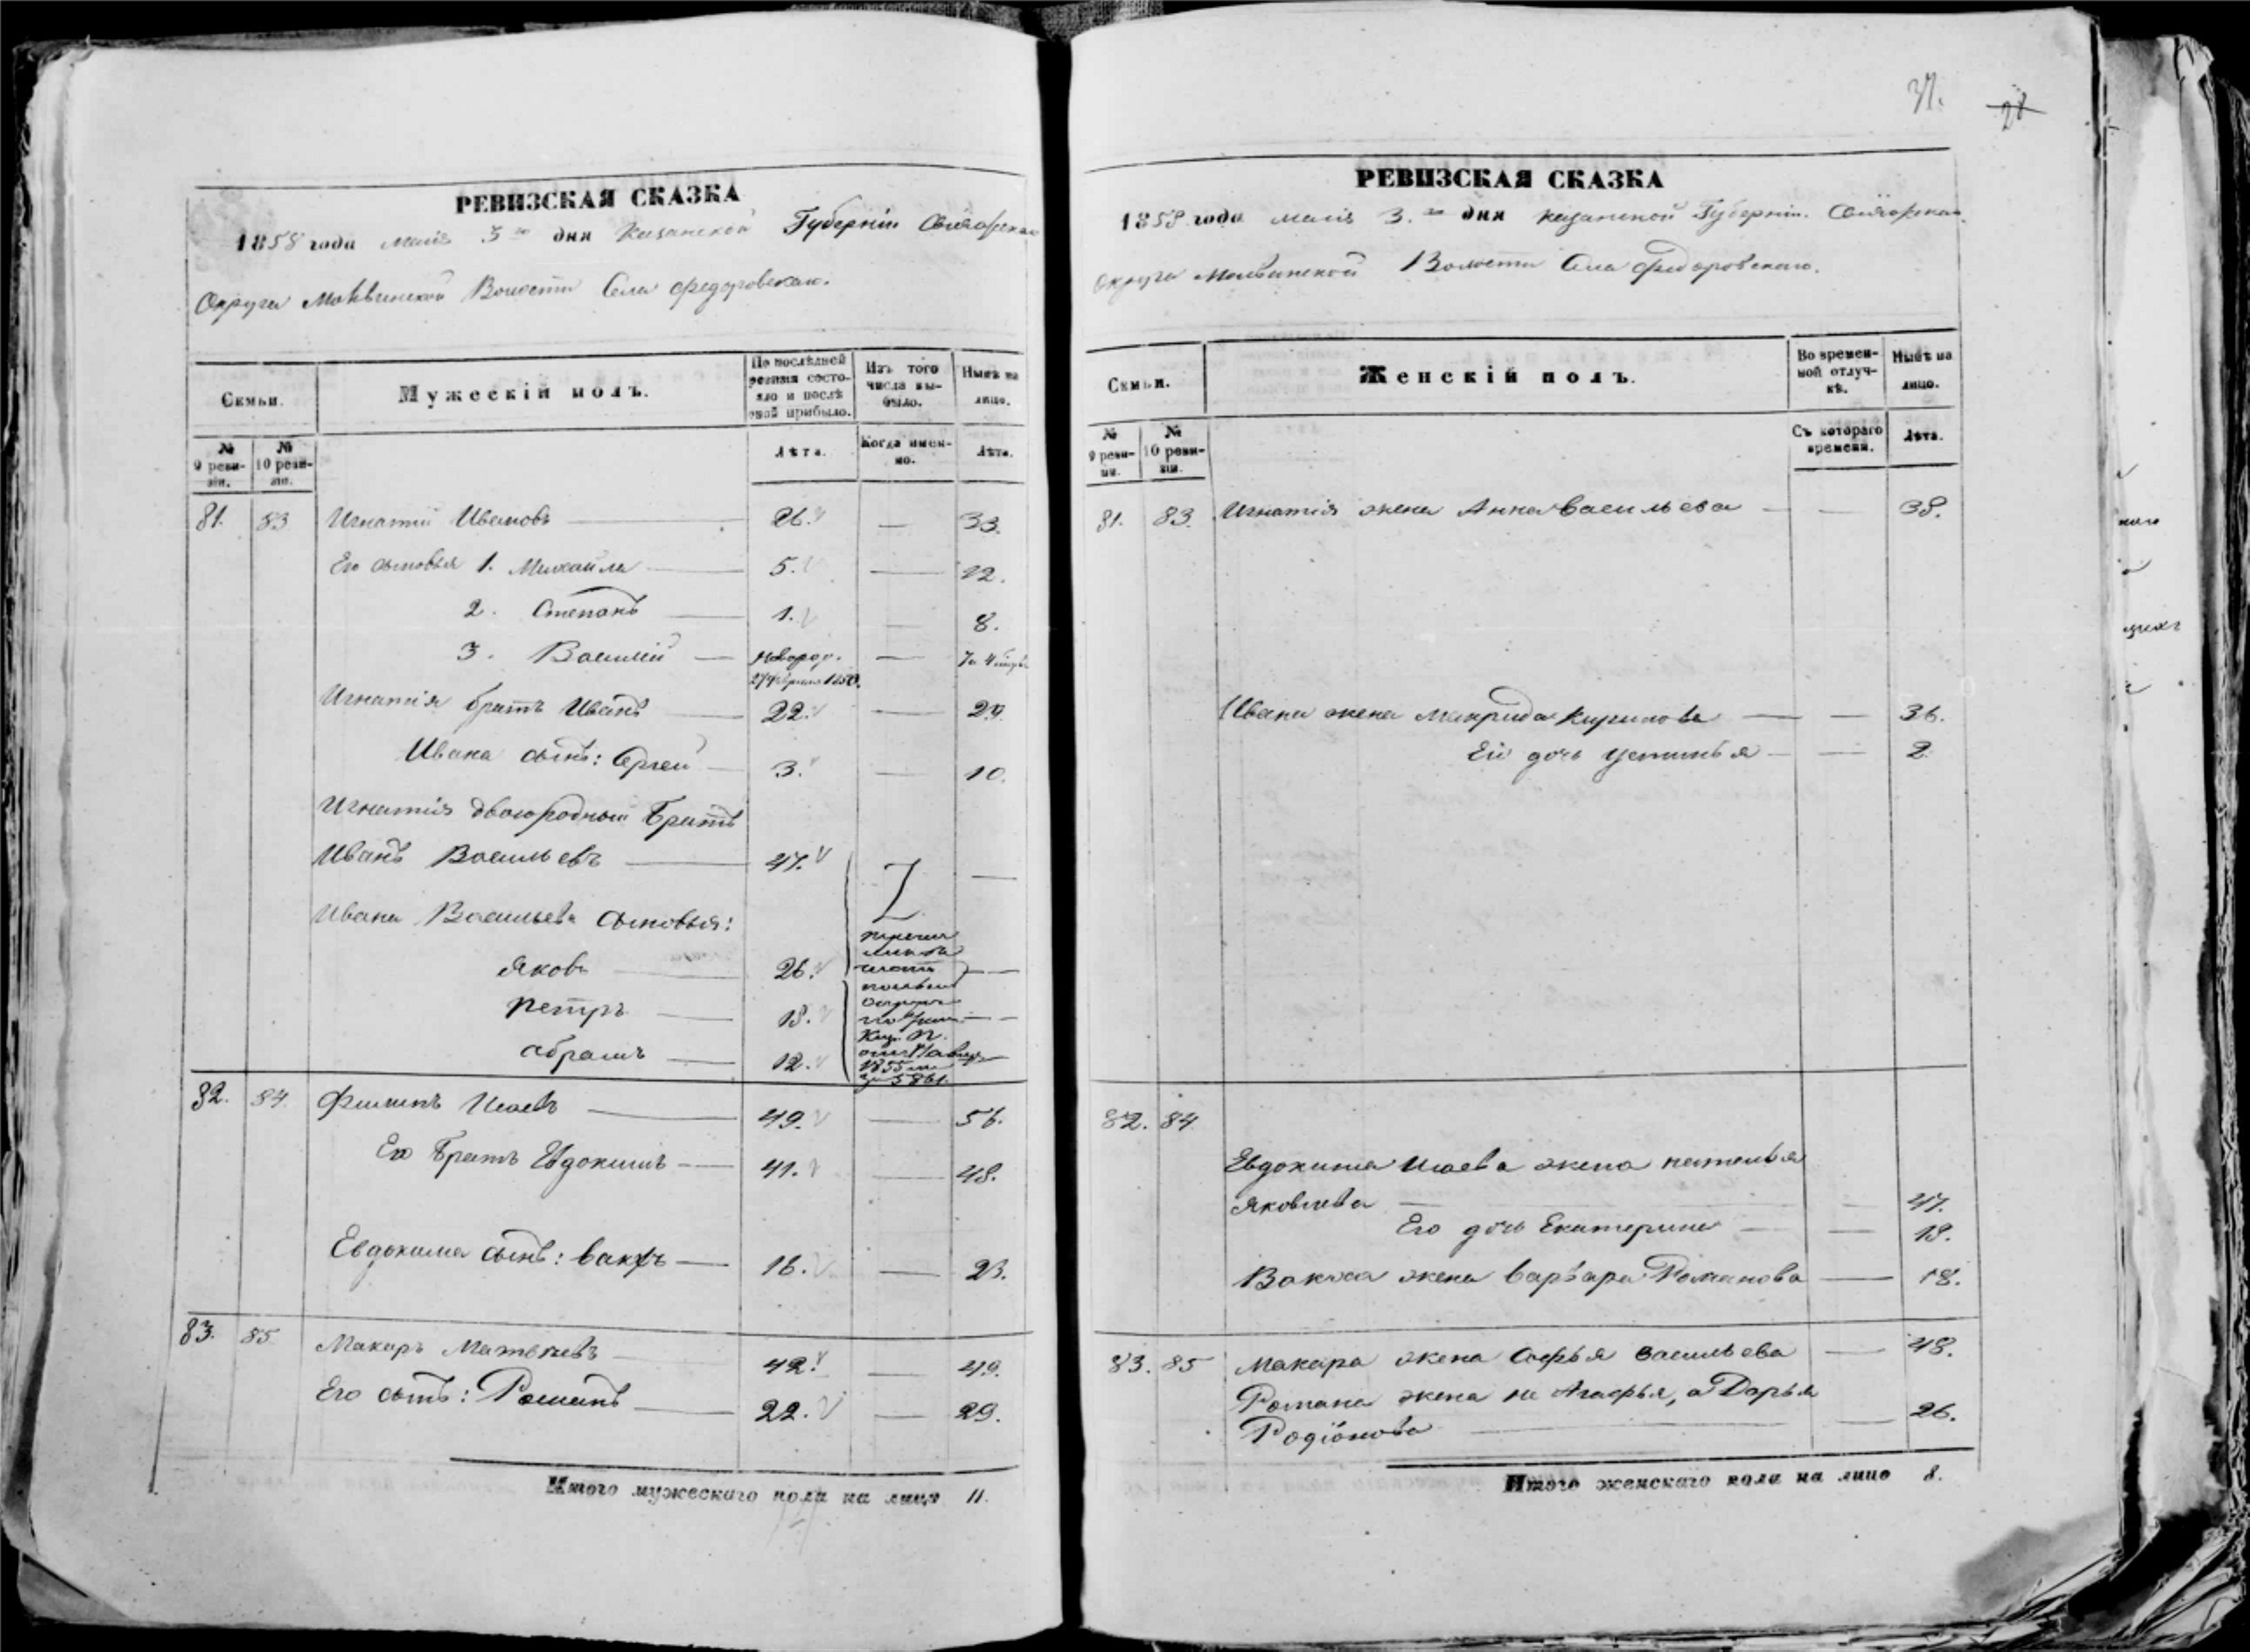 37.
28
РЕВИЗСКАЯ СКАЗКА
1858 года маія 3го дня Казанской Губерніи Свіяжскаго
Округа Молвинской Волости Села Федоровскаго.
Семьи.
Мужескій полъ.
По послѣдней ревизіи состояло и послѣ оной прибыло.
Изъ того числа выбыло.
Нынѣ на лицо.
№ 9 ревизіи.
№ 10 ревизіи.
Лѣта.
Когда именно.
Лѣта.
81. 83 Игнатій Ивановъ 26. — 33.
Его сыновья 1. Михайла 5. — 12.
2. Степанъ 1. — 8.
3. Василій новорож. —
Игнатія братъ Иванъ 22. — 29.
Ивана сынъ: Сергей 3. — 10.
Игнатія двоюродный братъ
Иванъ Васильевъ 47. —
Ивана Васильева сыновья:
Яковъ 26. —
Петръ 18. —
Абрамъ 12. —
82. 84 Филипъ Исаевъ 49. — 56.
Его братъ Евдокимъ 41. — 48.
Евдокима сынъ: Вакхъ 16. — 23.
83. 85 Макаръ Матвѣевъ 42. — 49.
Его сынъ: Романъ 22. — 29.
Итого мужескаго пола на лицо 11.
РЕВИЗСКАЯ СКАЗКА
1858 года маія 3.го дня Казанской Губерніи. Свіяжскаго
Округа Молвинской Волости Села Федоровскаго.
Семьи.
Женскій полъ.
Во временной отлучкѣ.
Нынѣ на лицо.
№ 9 ревизіи.
№ 10 ревизіи.
Съ котораго времени.
Лѣта.
81. 83. Игнатія жена Анна Васильева — 38.
Ивана жена Макрида Кирилова — 36.
Его дочь Устинья — 2.
82. 84
Евдокима Исаева жена Наталья
Яковлева — 47.
Его дочь Екатерина — 19.
Вакха жена Варвара Романова — 18.
83. 85 Макара жена Софья Васильева — 48.
Романа жена не Агафья, а Дарья
Родіонова — 26.
Итого женскаго пола на лицо 8.